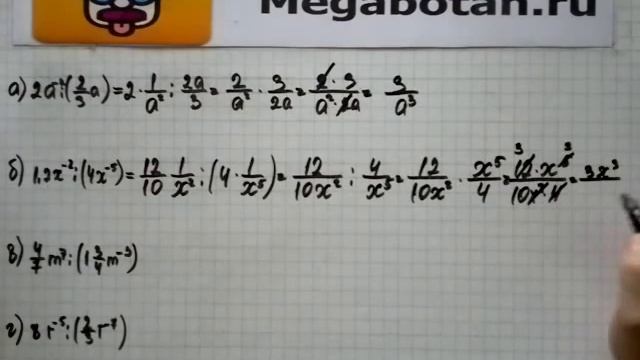 Megabotan.ru
а) 2a⁻² : (2/3 a) = 2 · 1/a² : 2a/3 = 2/a² · 3/2a = 2 · 3/a² · 2a = 3/a³
б) 1,2x⁻² : (4x⁻⁵) = 12/10 1/x² : (4 · 1/x⁵) = 12/10x² : 4/x⁵ = 12/10x² · x⁵/4 = 12 · x⁵/10x² 4 = 3x³
в) 4/7 m⁷ : (1 3/4 m⁻³)
г) 8 r⁻⁵ : (2/3 r⁻⁷)